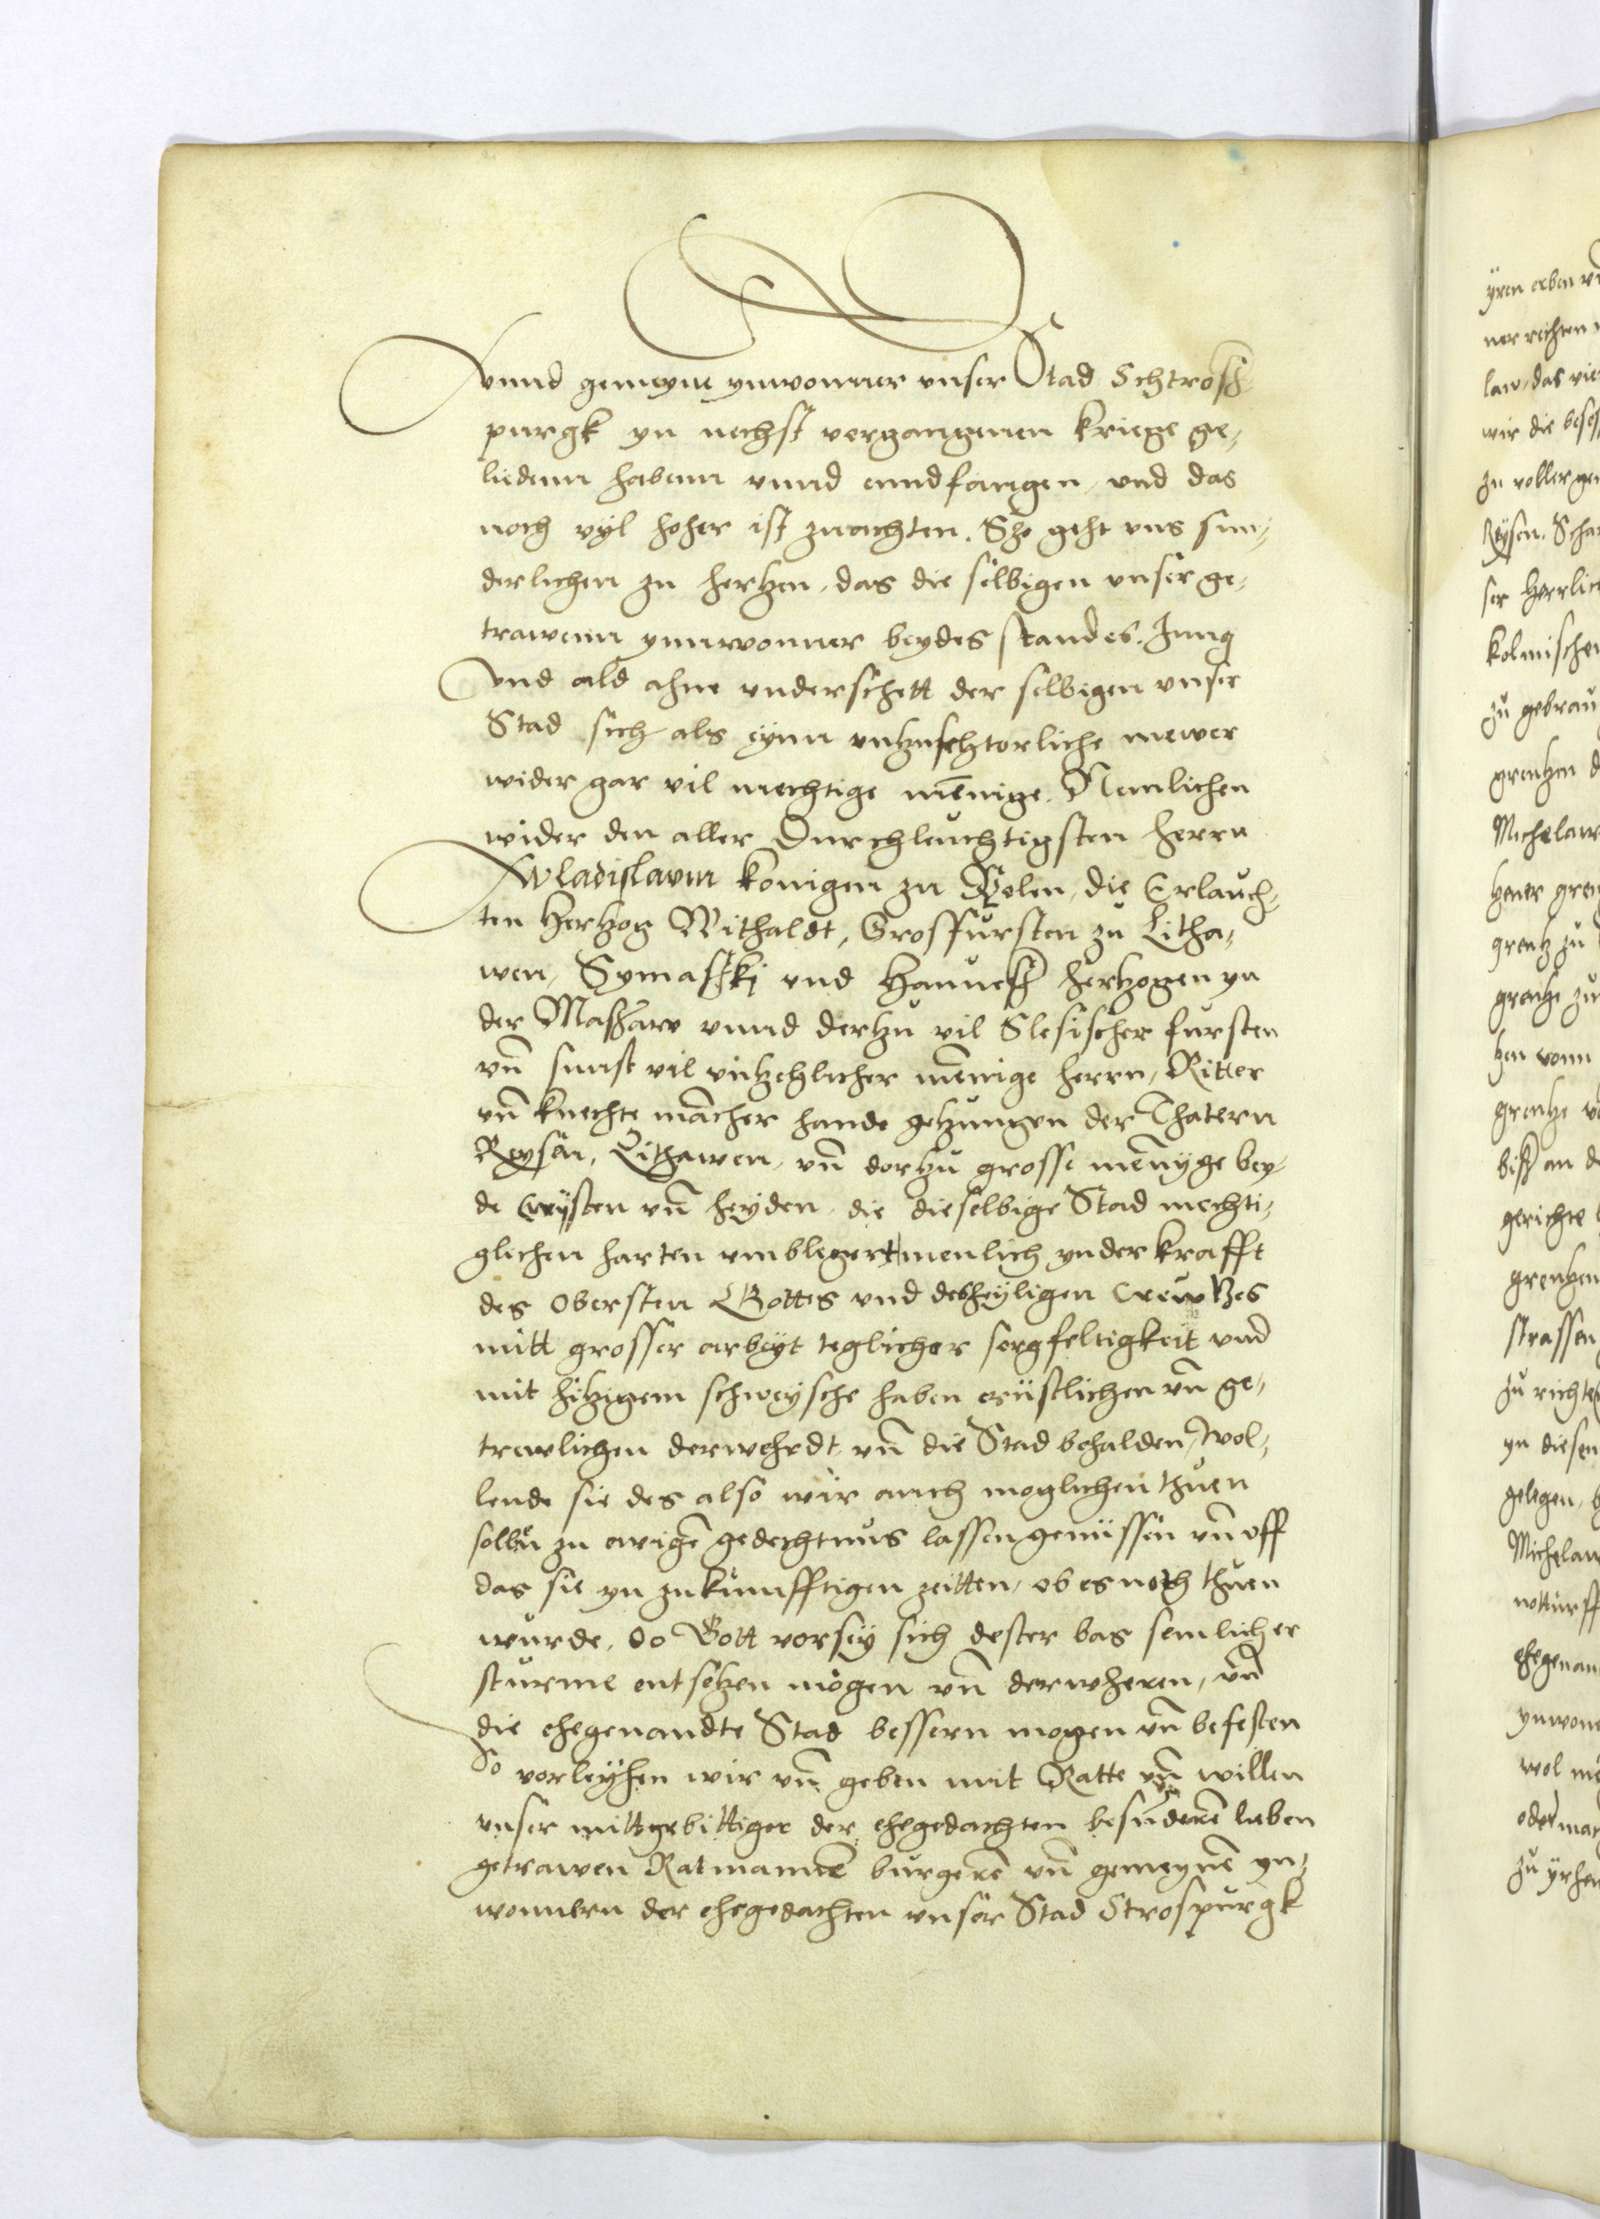 vnnd gemeyne ynwonner vnser Stad Schtrosz-
purgk yn nechst vergangenen kriege ge-
liedenn habenn vnnd enndfangen, vnd das
noch vyl hoher ist zuachten. Sze geht vns sun-
derlichen zu hertzen, das die selbigen vnser ge-
trawenn ynnwonner beydes standes. Jung
vnd ald ahne vnderschett der selbigen vnser
Stad sich als eynn mewer
wider gar vil mechtige mēnige. Nemlichen
wider den aller Durchleuchtigsten herrn
Wladislaum konigen zu Polen, die Erlauch-
ten Hertzog Withaldt, Grosfursten zu Litha-
wen, Symasski vnd Hannesz hertzogen yn
der Maszaw vnnd dertzu vil Slesischer fursten
vn̄ sunst vil vntzehlicher mēnige herrn, Ritter
vn̄ knechte mācher hande getzungen der Thatern
Reysen, Lithawen, vn̄ dortzu grosse mēnyge bey-
de Crysten vn̄ heyden, die dieselbige Stad mechti-
glichen harten vmblegert menlich ynder krafft
des Obersten Gottes vnd desheyligen Crewtzes
mitt grosser arbeyt teglicher sorgfeltigkeit vnd
mit hitzigem schweysche haben ernstlichen vn̄ ge-
trewlichen derwehrdt vn̄ die Stad behalden, wol-
lende sie des also wir auch moglichen thuen
sollen zu ewigē gedechtnus lassen genüssen vn̄ vff
das sie yn zukumfftigen zeitten, ob es noth thuen
wurde, do Gott vorsey sich dester bas semlicher
sturme entsetzen mogen vn̄ derwheren, vn̄
die ehegenandte Stad bessern mogen vn̄ befesten
So vorleyhen wir vn̄ geben mit Ratte vn̄ willen
vnser mittgebittiger der ehegedachten besunderē lieben
getrawen Ratmannē burgerē vn̄ gemeynē yn-
wonnern der ehegedachten vnser Stad Strospurgk
yren erben
ner rechten
law, das
wir die
zu voller
Reysen.
ser herrlic
kolmischen
zu gebrau
grentzen d
Michelaw
grentz zu
grentze zu
tzen vonn
grentze
bisz an d
gerichte
grentzen
strassen
zu richte
yn diesen
gelegen,
Michelaw
ehegenan
wol
oder
zu